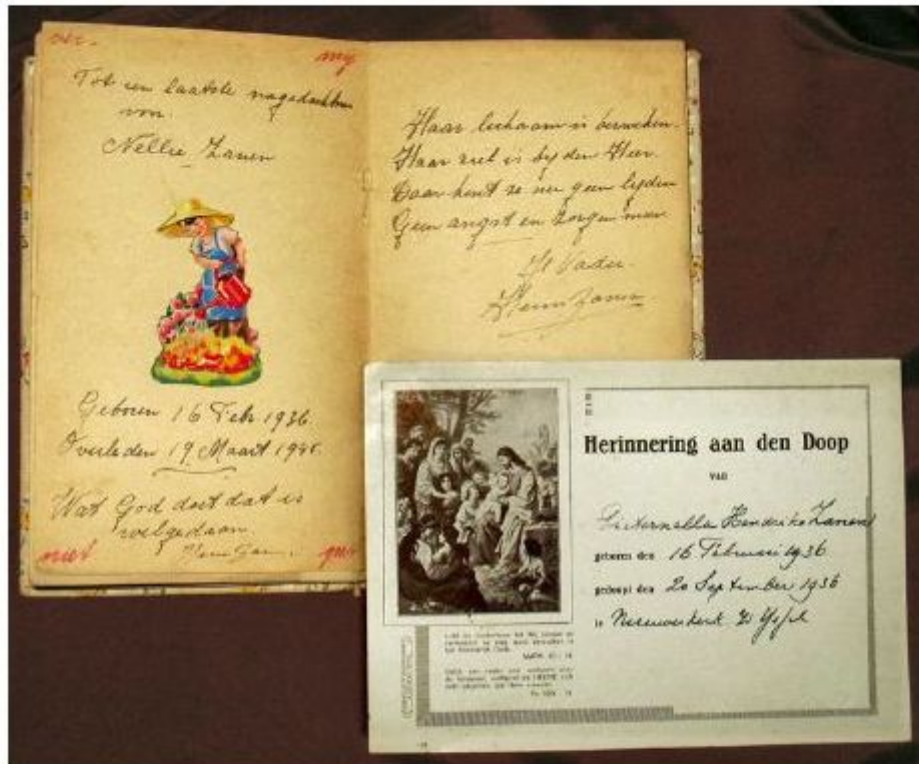 ver- my
Tot een laatste nagedachtenis
van
Nellie Zanen
Geboren 16 Feb 1936
Overleden 19 Maart 1945.
Wat God doet dat is
welgedaan
niet
Haar lichaam is bezweken.
Haar ziel is by den Heer.
Daar kent ze nu geen lyden
Geen angst en zorgen meer
Je Vader
Zanen
Herinnering aan den Doop
VAN
Pieternella Hendrika Zanen
geboren den 16 Februari 1936
gedoopt den 20 September 1936
te Nieuwerkerk Yssel